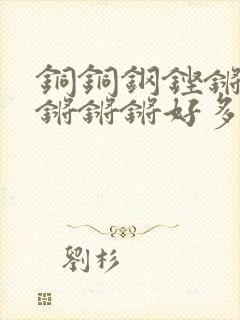 銅銅鋼鏗鏘
鏘鏘鏘好多
劉杉